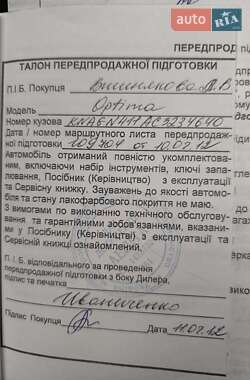 AUTO.RIA
ПЕРЕДПРОД
ТАЛОН ПЕРЕДПРОДАЖНОЇ ПІДГОТОВКИ
П.І.Б. Покупця Вишнякова Л.В
Модель Optima
Номер кузова KNAEN411AC3234640
Дата / номер маршрутного листа передпродаж-
ної підготовки 109304 от 10.02.12
Автомобіль отриманий повністю укомплектова-
ним, включаючи набір інструментів, ключі запа-
лювання, Посібник (Керівництво) з експлуатації
та Сервісну книжку. Зауважень до якості автомо-
біля та стану лакофарбового покриття не маю.
З вимогами по виконанню технічного обслугову-
вання, та гарантійними зобов'язаннями, вказани-
ми у Посібнику (Керівництві) з експлуатації та
Сервісній книжці ознайомлений.
П.І.Б. відповідального за проведення
передпродажної підготовки з боку Дилера,
підпис та печатка
Иваниченко
Підпис Покупця Дата 11.02.12